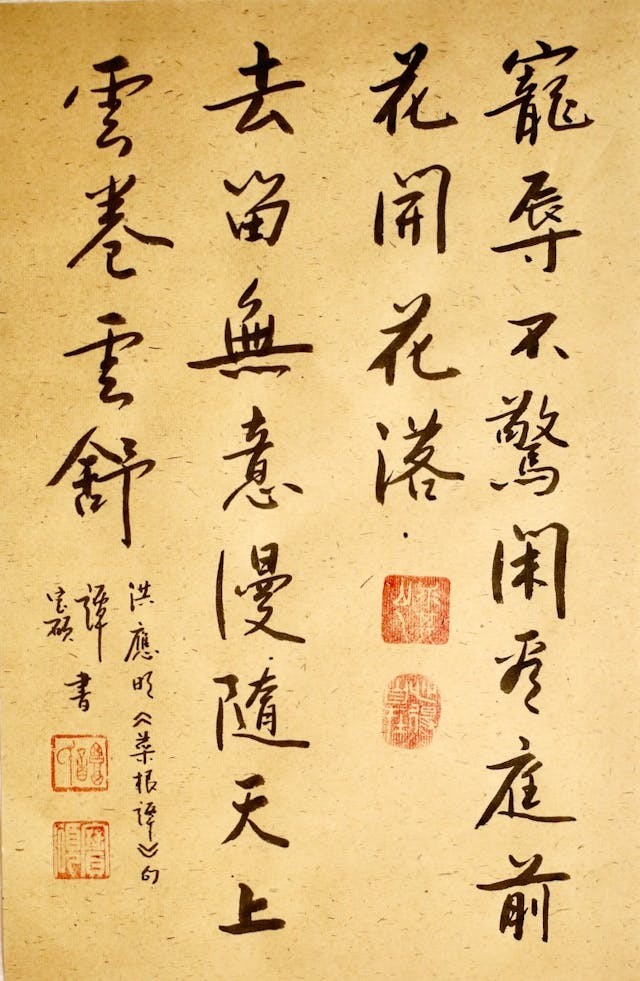 寵辱不驚閑看庭前
花開花落
去留無意漫隨天上
雲卷雲舒
洪應明《菜根譚》句
譚
書